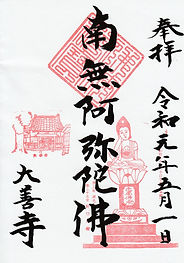 奉拝
令和元年五月一日
南無阿弥陀佛
大善寺